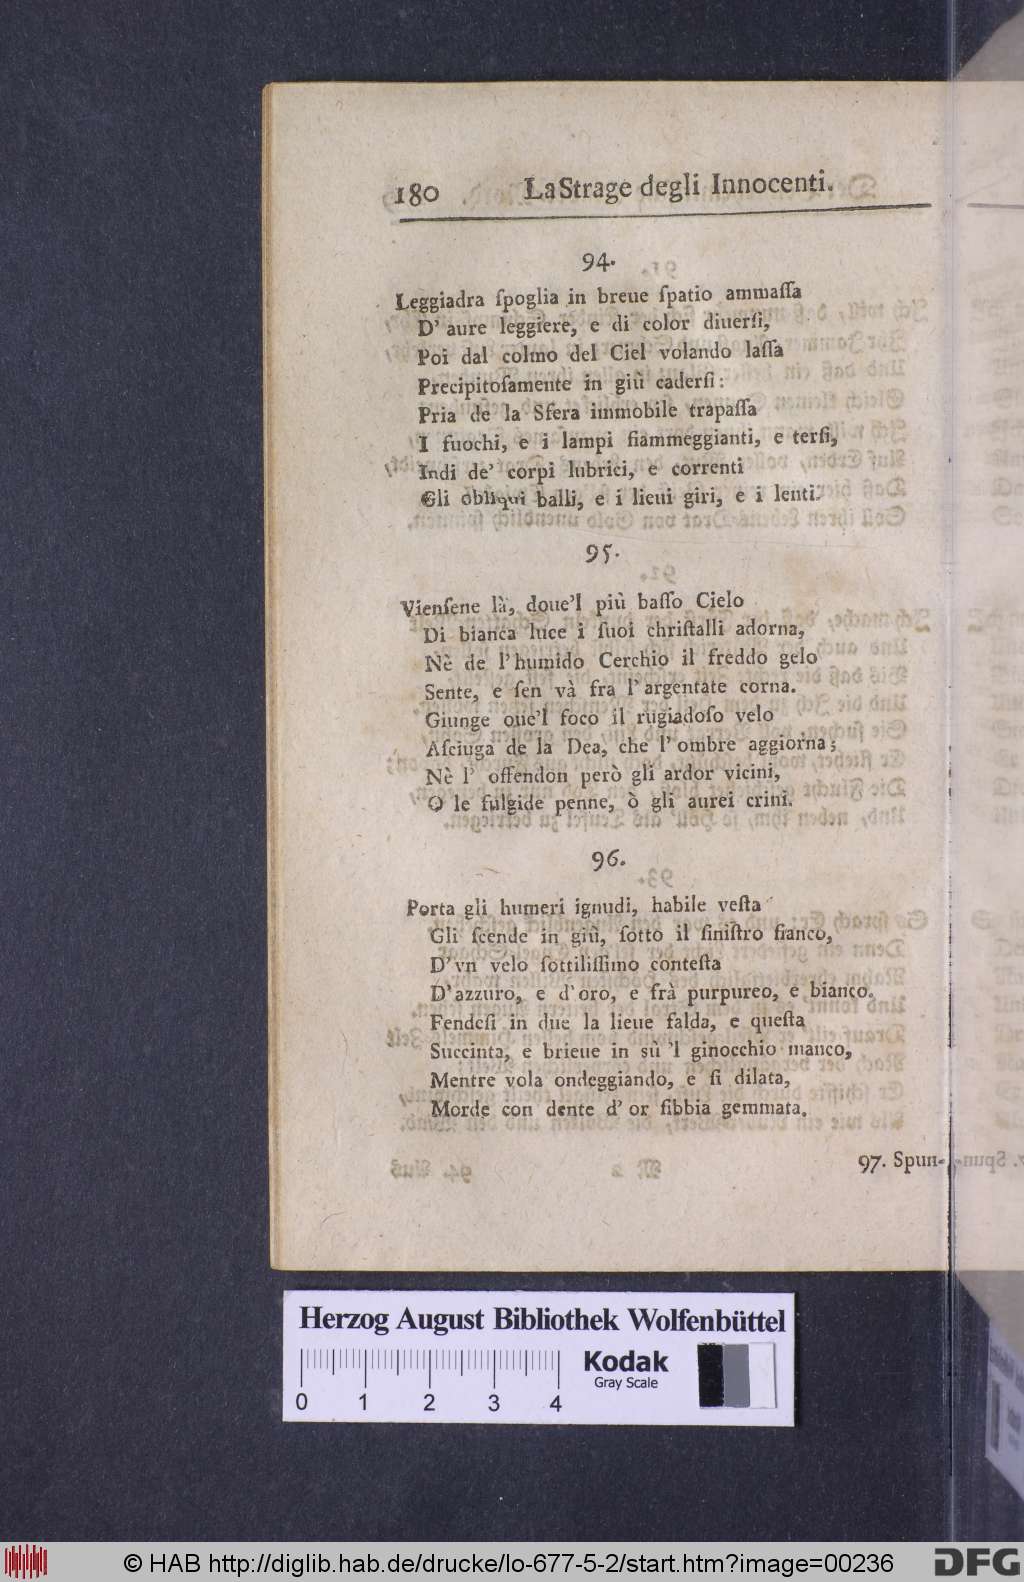 180 La Strage degli Innocenti.
94.
Leggiadra ſpoglia in breue ſpatio ammaſſa
D' aure leggiere, e di color diuerſi,
Poi dal colmo del Ciel volando laſſa
Precipitoſamente in giù caderſi:
Pria de la Sfera immobile trapaſſa
I fuochi, e i lampi fiammeggianti, e terſi,
Indi de' corpi lubrici, e correnti
Gli obliqui balli, e i lieui giri, e i lenti.
95.
Vienſene là, doue'l più baſſo Cielo
Di bianca luce i ſuoi chriſtalli adorna,
Nè de l' humido Cerchio il freddo gelo
Sente, e ſen và fra l' argentate corna.
Giunge oue'l foco il rugiadoſo velo
Aſciuga de la Dea, che l' ombre aggiorna;
Nè l' offendon però gli ardor vicini,
O le fulgide penne, ò gli aurei crini.
96.
Porta gli humeri ignudi, habile veſta
Gli ſcende in giù, ſotto il ſiniſtro fianco,
D'vn velo ſottiliſſimo conteſta
D'azzuro, e d'oro, e frà purpureo, e bianco.
Fendeſi in due la lieue falda, e queſta
Succinta, e brieue in sù 'l ginocchio manco,
Mentre vola ondeggiando, e ſi dilata,
Morde con dente d' or fibbia gemmata.
97. Spun-
Herzog August Bibliothek Wolfenbüttel
Kodak
Gray Scale
0 1 2 3 4
© HAB http://diglib.hab.de/drucke/lo-677-5-2/start.htm?image=00236
DFG